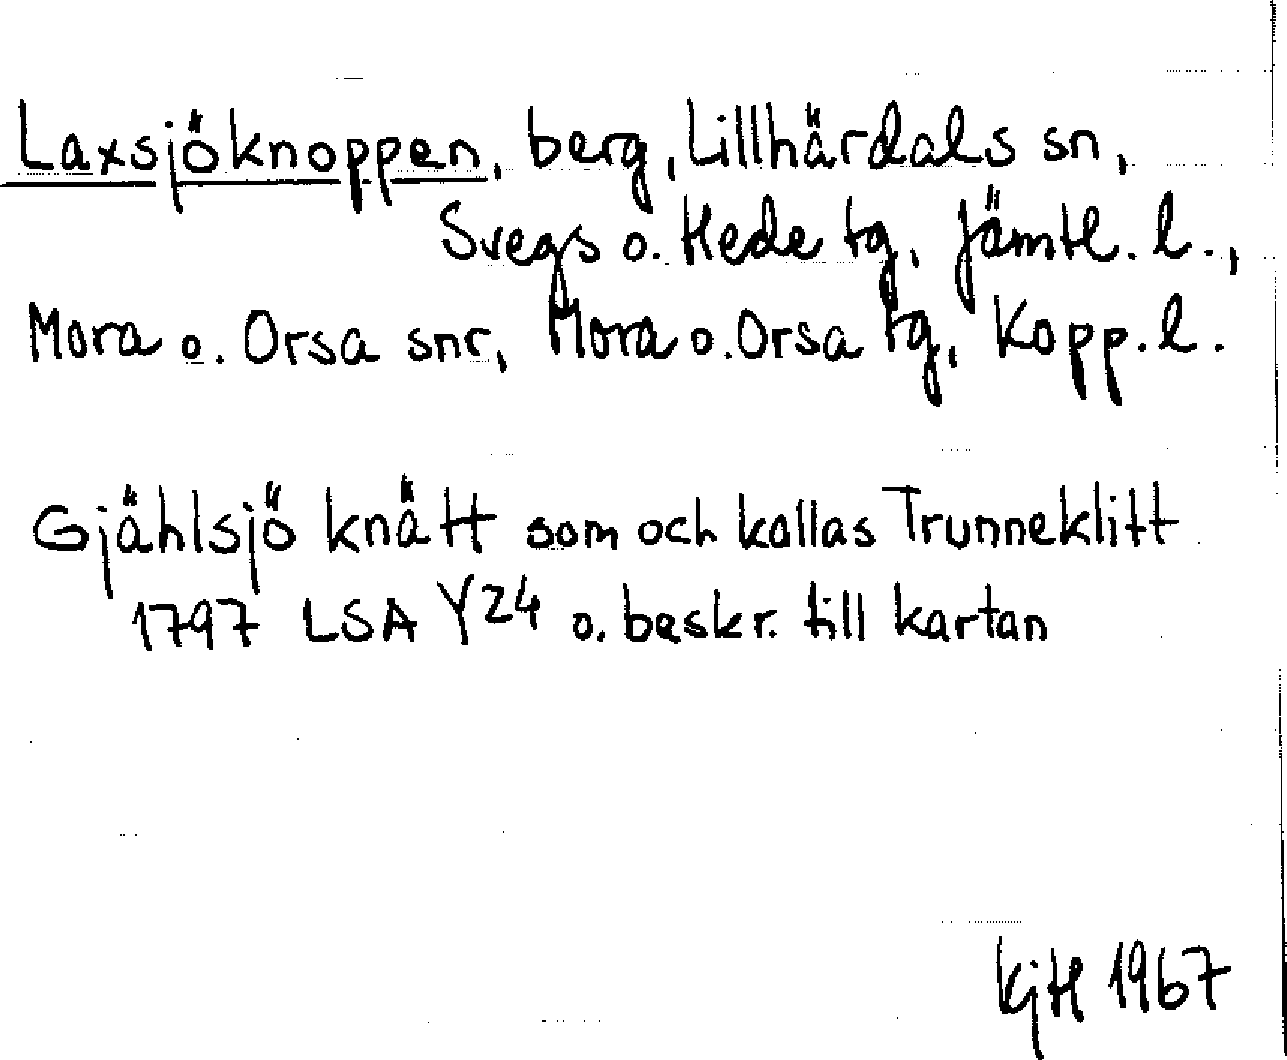 Laxsjöknoppen, berg, Lillhärdals sn,
Svegs o. Hede tg, Jämtl. l.,
Mora o. Orsa snr, Mora o. Orsa tg, Kopp. l.
Gjählsjö knätt som och kallas Trunneklitt
1797 LSA Y24 o. beskr. till kartan
KjH 1967